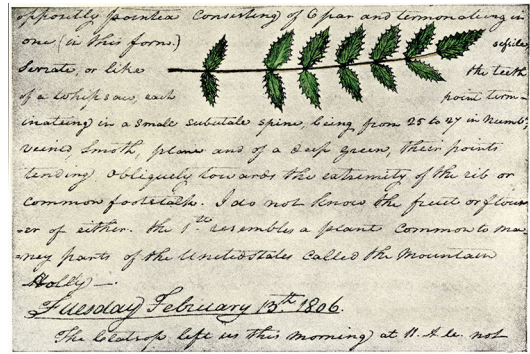 oppositly pointed consisting of 6 par and termonateing in
one (in this form.) sessile
serrate, or like the teeth
of a whip saw, each point term-
inateing in a small subulate spine, being from 25 to 27 in numbr.
veined, smoth, plane and of a deep green, their points
tending obliquely towards the extremity of the rib or
common footstalk. I do not know the fruit or flow-
er of either. the 1st resembles a plant common to ma-
ney parts of the Unitedstates called the Mountain
Holly —.
Tuesday February 13th 1806.
The Clatsops left us this morning at 11. A.M. not